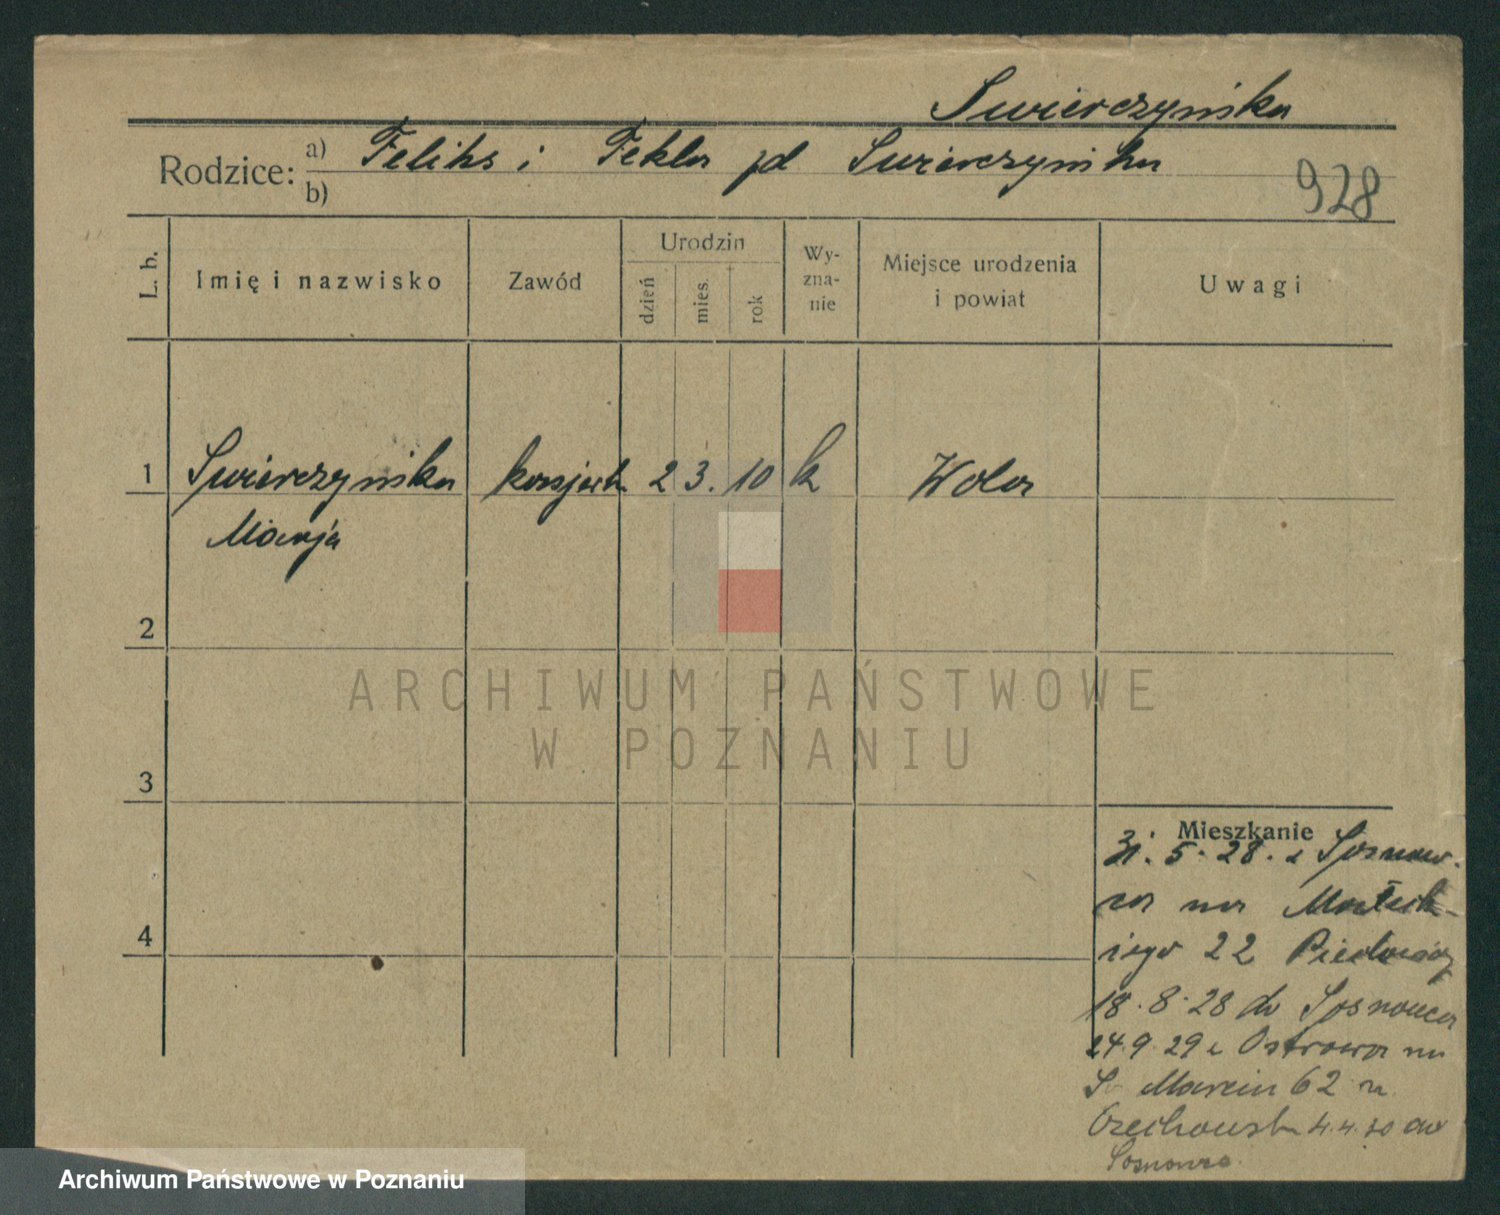 Swierczyńska
Rodzice: a) Feliks i Tekla zd Swierczyńska
b)
928
L. b.
Imię i nazwisko
Zawód
Urodzin
dzień
mies.
rok
Wy-
zna-
nie
Miejsce urodzenia
i powiat
Uwagi
1 Swierczyńska 2 3. 10 k Wola
Marja
2
3
4
Mieszkanie
31.5.28. z Sosnow-
ca na Małeck-
iego 22
18.8.28 do Sosnowca
24.9.29 z Ostrowa na
Św Marcin 62 u
4.4.30 do
Sosnowca.
ARCHIWUM PAŃSTWOWE
W POZNANIU
Archiwum Państwowe w Poznaniu